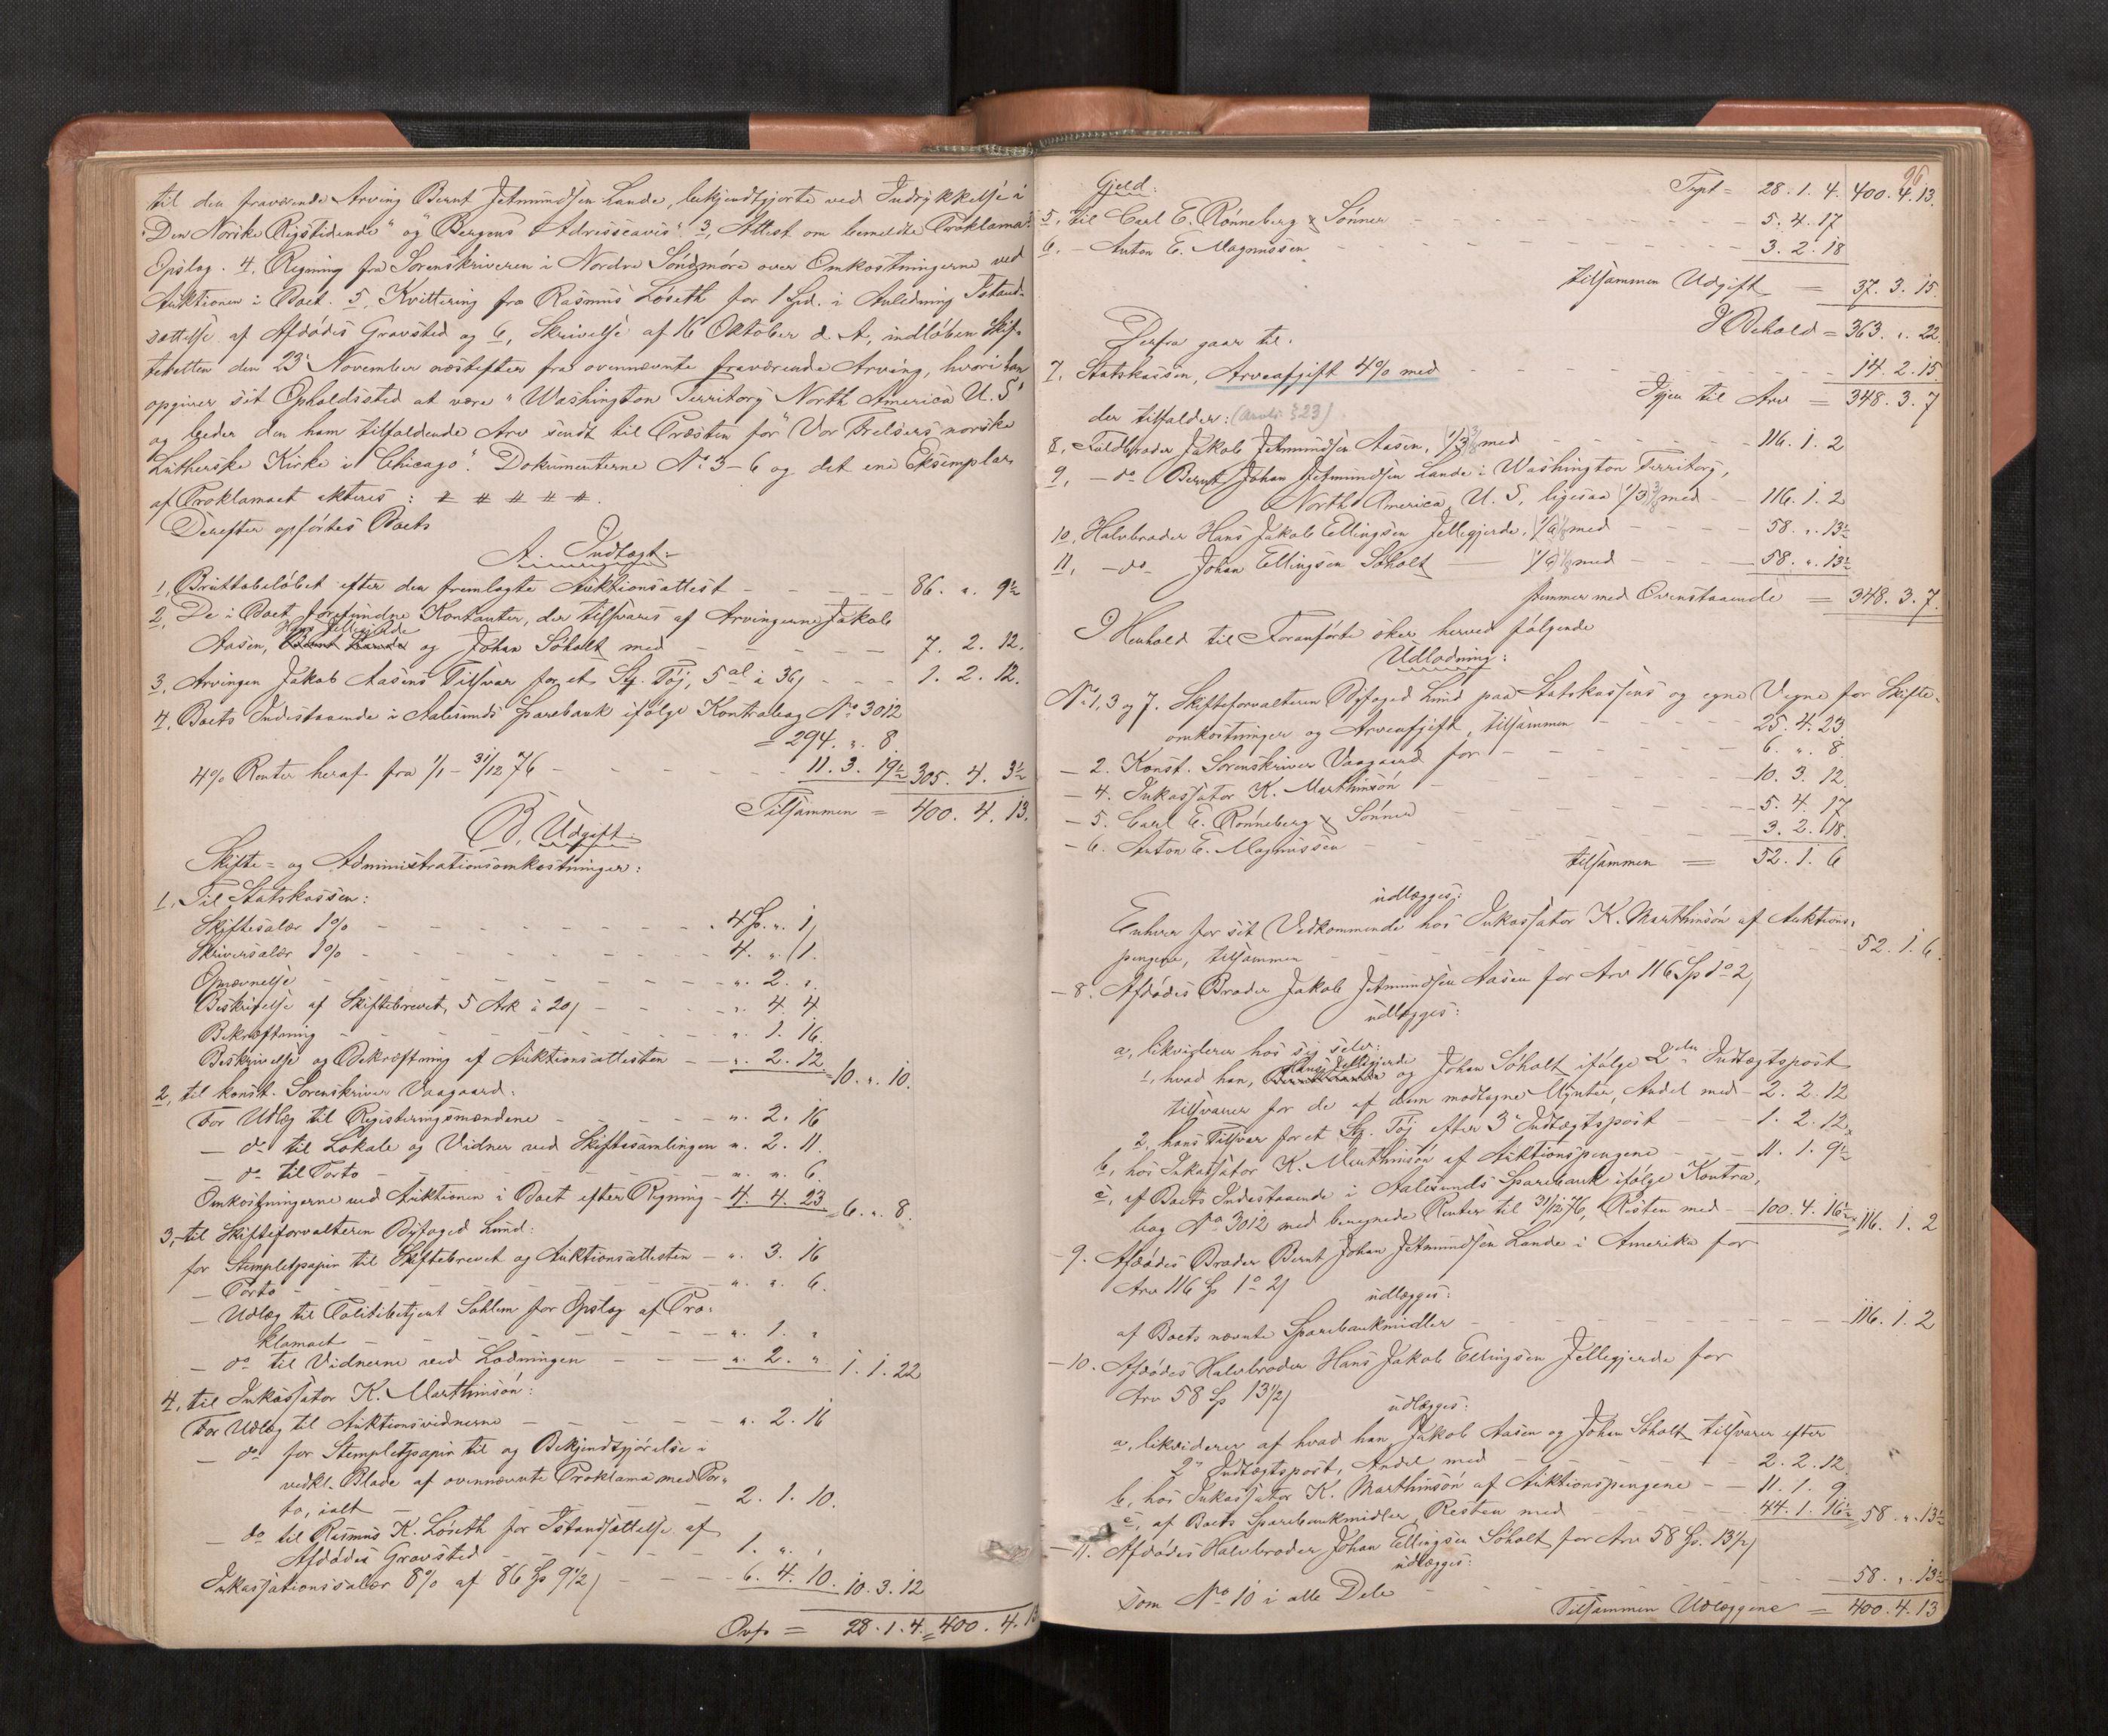 til den fraværende Arving Bernt Jetmundsen Lande, bekjendtgjorte ved Indrykkelse i
"Den Norske Rigstidende" og "Bergens Adresseavis". 3, Attest om bemeldte Proklamas
Opslag. 4, Regning fra Sorenskriveren i Nordre Söndmöre over Omkostningerne ved
Auktionen i Boet. 5, Kvittering fra Rasmus Löseth for 1 Spd. i Anledning Istand-
sættelse af Afdödes Gravsted og 6, Skrivelse af 16 Oktober d. A., indlöben Skif-
teretten den 23 November næstefter fra ovennævnte fraværende Arving, hvori han
opgiver sit Opholdssted at være "Washington Territory North America U. S"
og beder den ham tilfaldende Arv sendt til Præsten for "Vor Frelsers norske
Lutherske Kirke i Chicago". Dokumenterne No 3-6 og det ene Eksemplar
af Proklamaet akteres: # # # # #.
Derefter opförtes Boets
A. Indtægt:
1, Bruttobelöbet efter den fremlagte Auktionsattest - - - 86. „. 9½
2, De i Boet forefundne Kontanter, der tilsvares af Arvingerne Jakob
Hans Jelligjerde
Aasen, og Johan Söholt med - - - 7. 2. 12.
3, Arvingen Jakob Aasens Tilsvar for et Stz. Töj, 5 al à 36/ - - - 1. 2. 12.
4, Boets Indestaaende i Aalesunds Sparebank ifölge Kontrabog No 3012
= 294. „. 8.
4% Renter heraf fra 1/1 - 31/12 76 - - - 11. 3. 19½ 305. 4. 3½
Tilsammen = 400. 4. 13.
B. Udgift:
Skifte- og Administrationsomkostninger:
1, Til Statskassen:
Skiftesalær 1% - - - 4 Sp. „. 1/
Skriversalær 1% - - - 4. „. 1.
Opnævnelse - - - „. 2. „.
Beskrivelse af Skiftebrevet, 5 Ark à 20/ - - - „. 4. 4.
Bekræftning - - - „. 1. 16.
Beskrivelse og Bekræftning af Auktionsattesten - - „. 2. 12. = 10. „. 10.
2, til konst. Sorenskriver Vaagaard:
For Udlæg til Registeringsmændene - - - „. 2. 16
— do til Lokale og Vidner ved Skiftesamlingen „. 2. 11.
— do til Porto - - - „. „. 6.
Omkostningerne ved Auktionen i Boet efter Regning - 4. 4. 23. = 6. „. 8.
3, til Skifteforvalteren Byfoged Lund:
for Stempletpapir til Skiftebrevet og Auktionsattesten - „. 3. 16
— Porto - - - „. „. 6.
— Udlæg til Politibetjent Sahlem for Opslag af Pro-
klamaet - - - „. 1. „
— do til Vidnerne ved Lodningen - - - „. 2. „ 1. 1. 22
4, til Inkassator K. Marthinson:
For Udlæg til Auktionsvidnerne - - - „. 2. 16
— do for Stempletpapir til og Bekjendtgjörelse i
vedk. Blade af ovennævnte Proklama med Por-
to, ialt - - - 2. 1. 10.
— do til Rasmus K. Löseth for Istandsættelse af
Afdödes Gravsted - - - 1. „. „
Inkassationssalær 8% af 86 Sp 9½/ - - - 6. 4. 10. 10. 3. 12
Ovf. = 28. 1. 4. = 400. 4. 13
96
Gjeld: Trspt = 28. 1. 4. 400. 4. 13.
5, til Carl E. Rönneberg & Sönner - - - 5. 4. 17
6, — Anton E. Magnussen - - - 3. 2. 18
tilsammen Udgift = 37. 3. 15.
I Behold = 363. „. 22.
Derfra gaar til:
7, Statskassen, Arveafgift 4% med - - - 14. 2. 15.
Igjen til Arv = 348. 3. 7
der tilfalder: (Arvel. § 23)
8, Fuldbroder Jakob Jetmundsen Aasen, 1/3 med - - - 116. 1. 2
9, — do Bernt Johan Jetmundsen Lande i Washington Territory,
North America, U. S, ligesaa 1/3 med - - 116. 1. 2
10, Halvbroder Hans Jakob Ellingsen Jelligjerde, 1/6 med - - - 58. „. 13½
11, — do — Johan Ellingsen Söholt — 1/6 med - - - 58. „. 13½
stemmer med Ovenstaaende = 348. 3. 7.
I Henhold til Foranförte sker herved fölgende
Udlodning:
No 1, 3 og 7. Skifteforvalteren Byfoged Lund paa Statskassens og egne Vegne for Skifte-
omkostninger og Arveafgift, tilsammen - - - 25. 4. 23.
— 2. Konst. Sorenskriver Vaagaard for - - - 6. „. 8.
— 4. Inkassator K. Marthinson - - - 10. 3. 12.
— 5. Carl E. Rönneberg & Sönner - - - 5. 4. 17
— 6. Anton E. Magnussen - - - 3. 2. 18.
tilsammen = 52. 1. 6
udlægges:
Enhver for sit Vedkommende hos Inkassator K. Marthinson af Auktions-
pengene, tilsammen - - - 52. 1. 6.
— 8. Afdödes Broder Jakob Jetmundsen Aasen for Arv 116 Sp 1o 2/
udlægges:
a, likviderer hos sig selv:
Hans Jelligjerde
1, hvad han, og Johan Söholt ifölge 2den Indtægtspost
tilsvarer for de af dem modtagne Mynter, Andel med - 2. 2. 12
2, hans Tilsvar for et Stz. Töj efter 3die Indtægtspost - - 1. 2. 12.
b, hos Inkassator K. Marthinson af Auktionspengene - - - 11. 1. 9½
c, af Boets Indestaaende i Aalesunds Sparebank ifölge Kontra-
bog No 3012 med beregnede Renter til 31/12 76, Resten med - 100. 4. 16½ = 116. 1. 2
— 9. Afdödes Broder Bernt Johan Jetmundsen Lande i Amerika for
Arv 116 Sp 1o 2/
udlægges:
af Boets nævnte Sparebankmidler - - - 116. 1. 2
— 10. Afdödes Halvbroder Hans Jakob Ellingsen Jelligjerde for
Arv 58 Sp 13½/
udlægges:
a, likviderer af hvad han, Jakob Aasen og Johan Söholt tilsvarer efter
2den Indtægtspost, Andel med - - - 2. 2. 12.
b, hos Inkassator K. Marthinson af Auktionspengene - - 11. 1. 9
c, af Boets Sparebankmidler, Resten med - - - 44. 1. 16½ = 58. „. 13½
— 11. Afdödes Halvbroder Johan Ellingsen Söholt for Arv 58 Sp. 13½/
udlægges:
Som No 10 i alle Dele - - - 58. „. 13½
Tilsammen Udlæggene = 400. 4. 13